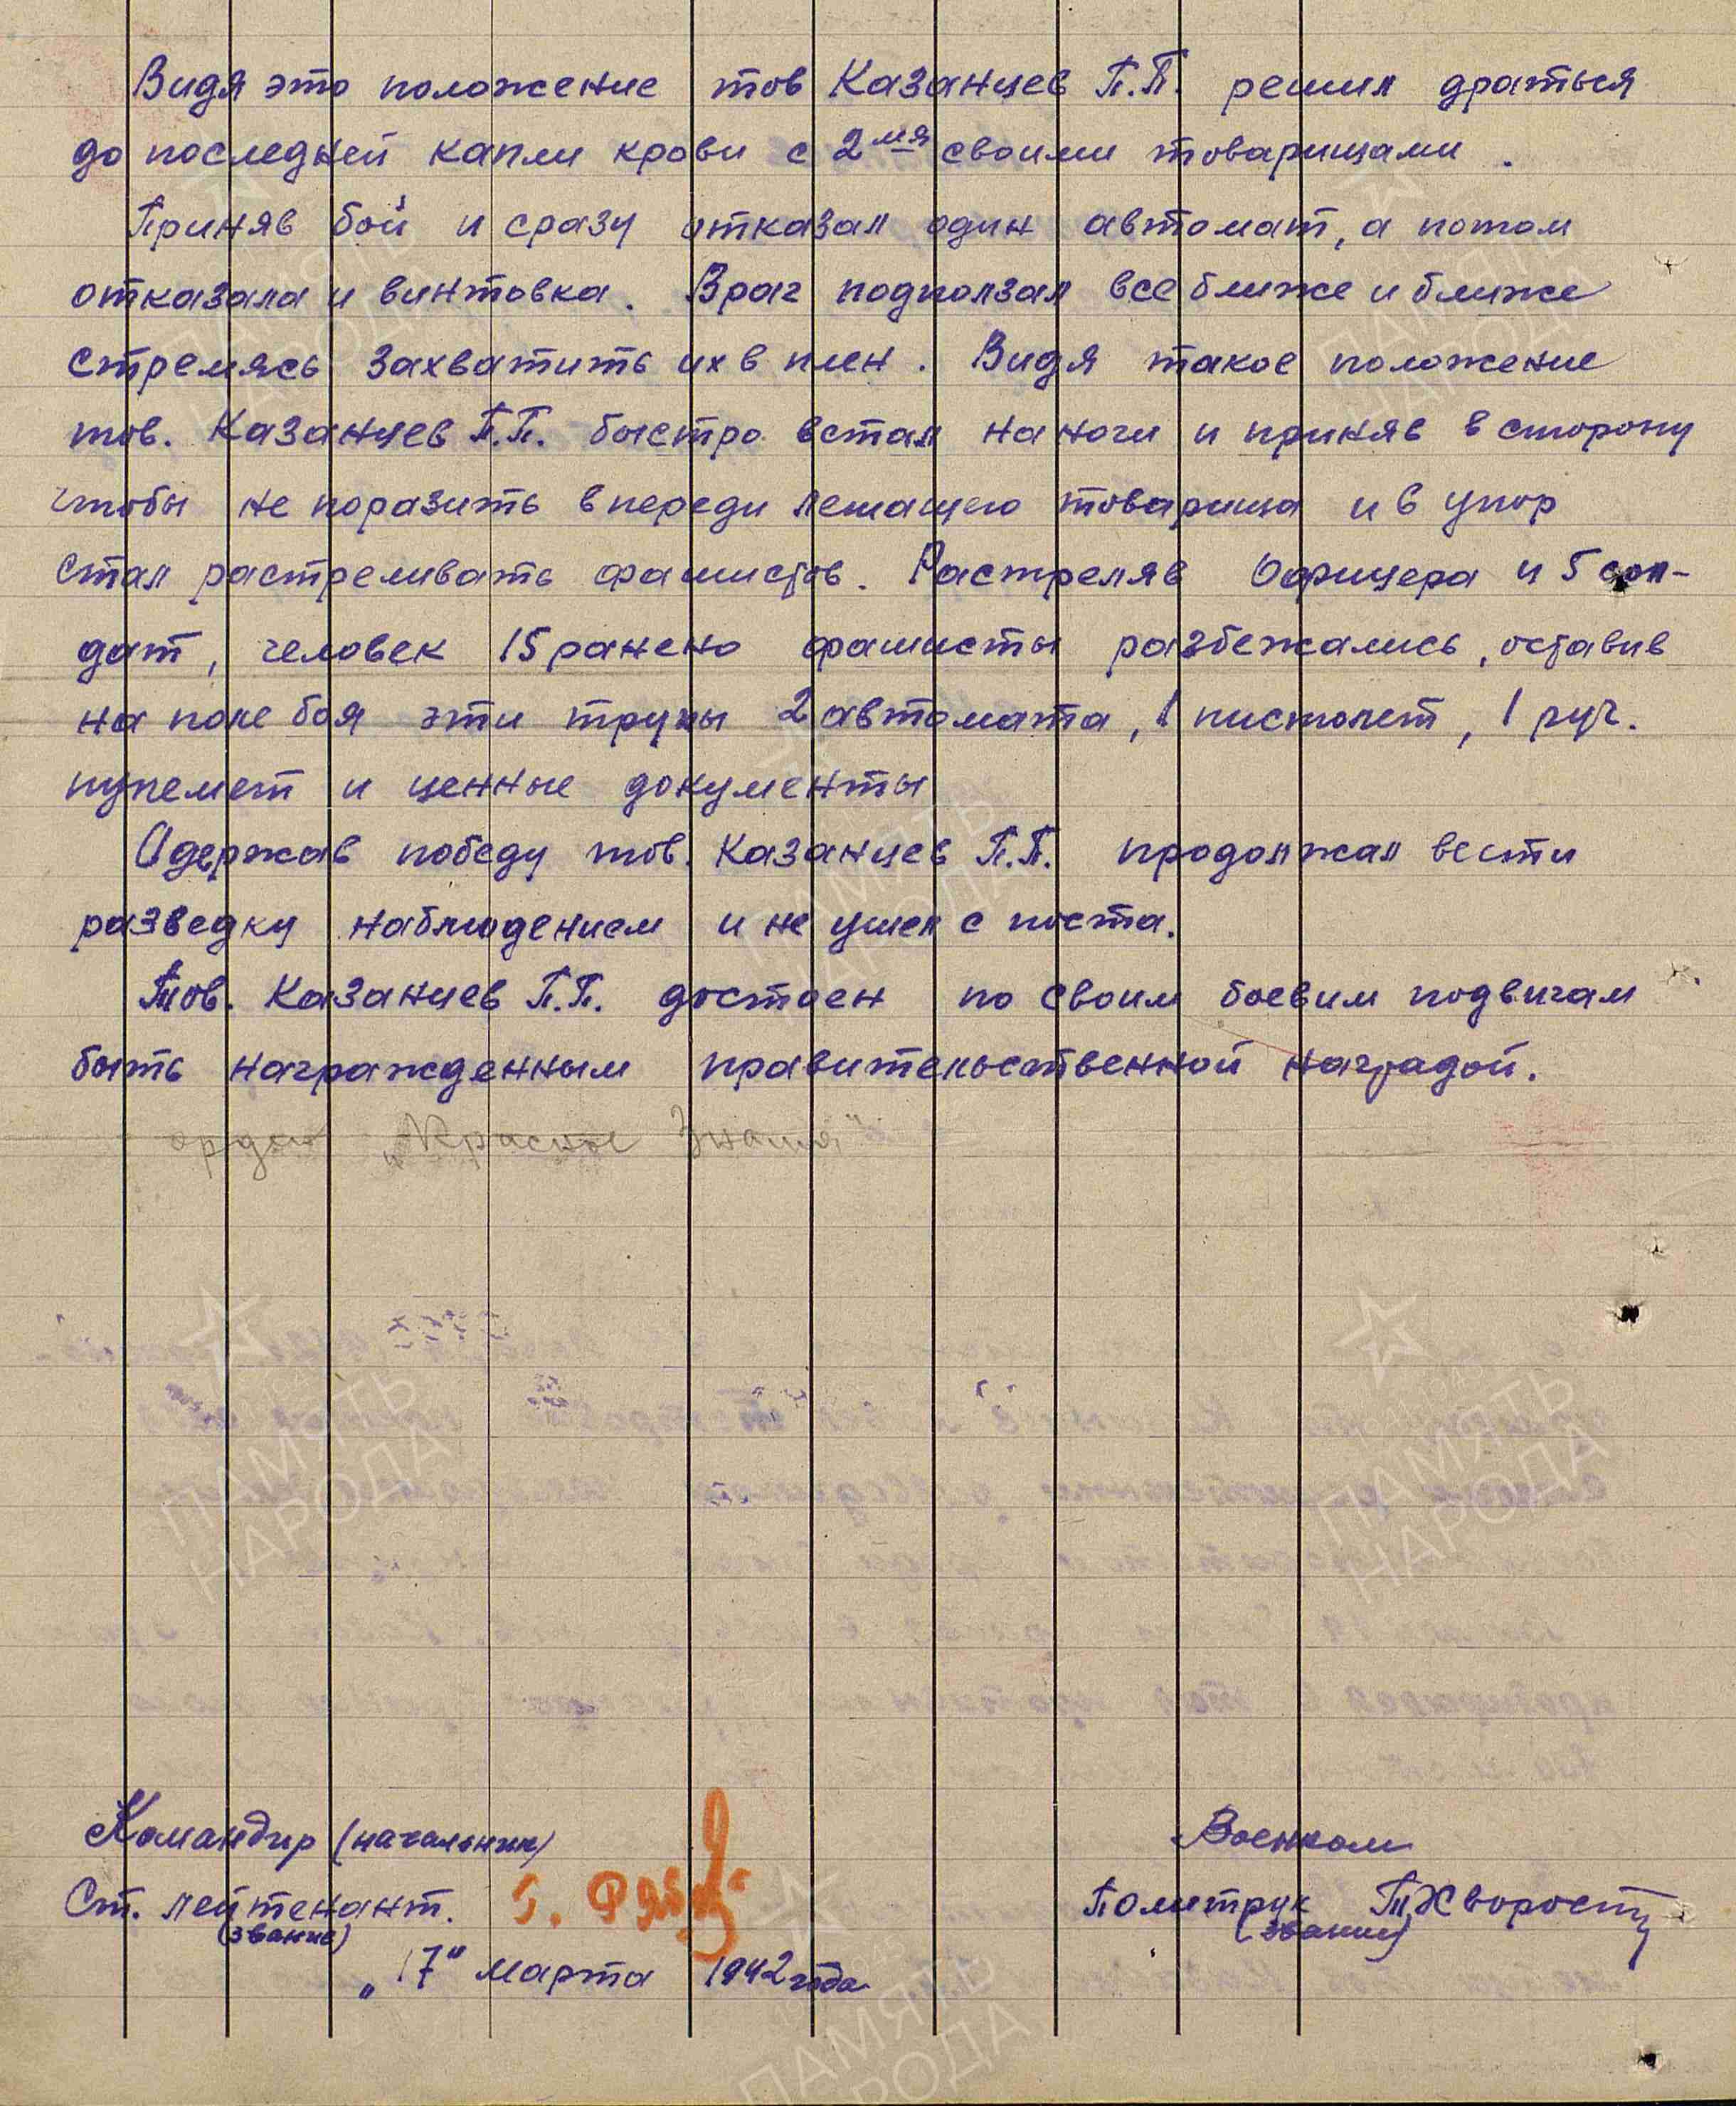 Видя это положение тов Казанцев П.П. решил драться
до последней капли крови с 2мя своими товарищами.
Приняв бой и сразу отказал один автомат, а потом
отказала и винтовка. Враг подползал все ближе и ближе
стремясь захватить их в плен. Видя такое положение
тов. Казанцев П.П. быстро встал на ноги и приняв в сторону
чтобы не поразить впереди лежащего товарища и в упор
стал растреливать фашистов. Растреляв Офицера и 5 сол-
дат, человек 15 ранено фашисты разбежались, оставив
на поле боя эти трупы 2 автомата, 1 пистолет, 1 руч.
пулемет и ценные документы
Одержав победу тов. Казанцев П.П. продолжал вести
разведку наблюдением и не ушел с поста.
Тов. Казанцев П.П. достоен по своим боевим подвигам
быть награжденным правительственной наградой.
орден „Красное Знамя"
Командир (начальник)
Военком
Ст. лейтенант.
Политрук Хворост
(звание)
(звание)
„17" марта 1942 года
ПАМЯТЬ
НАРОДА